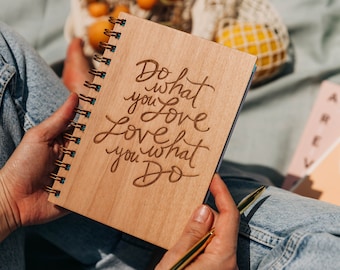 Do
what
you Love
Love
you what
Do